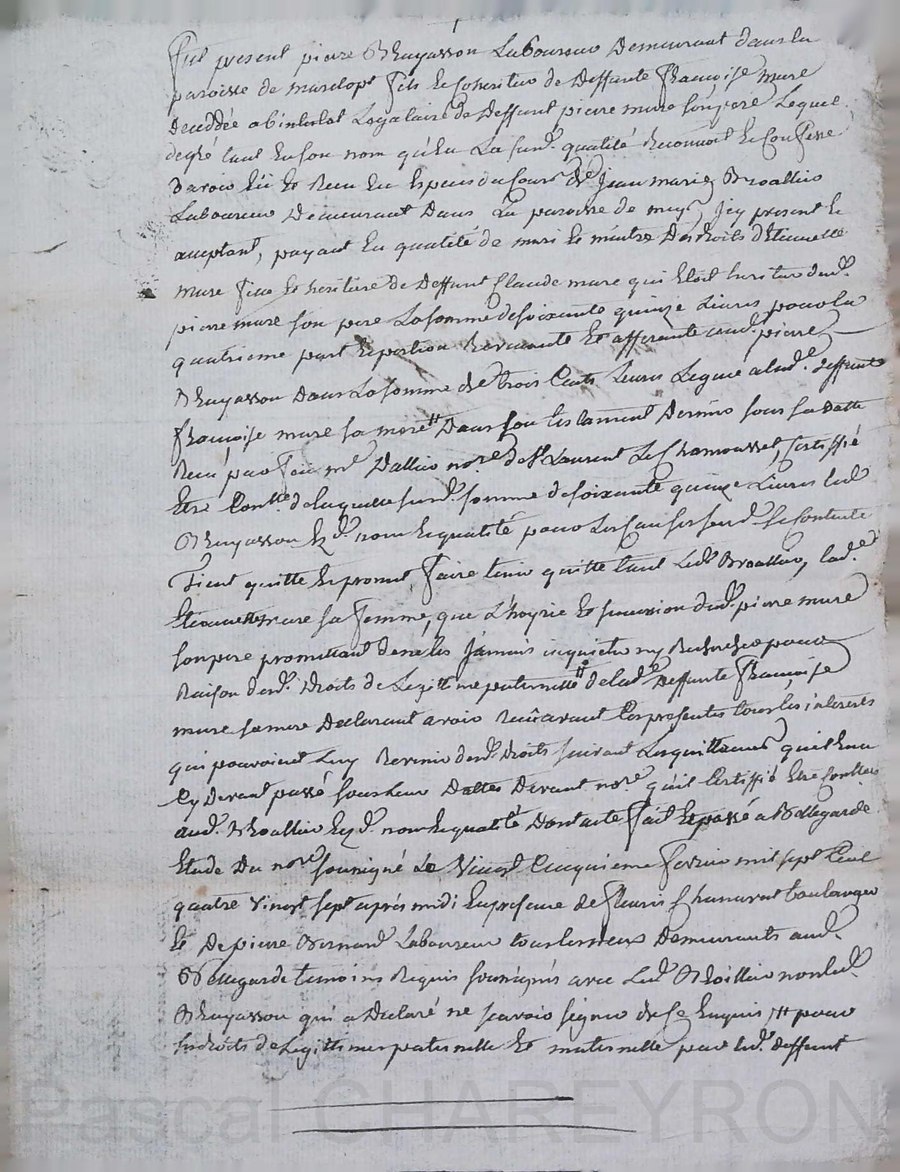 fut present pierre Bruyasson Laboureur Demeurant dans la
paroisse de marclopt fils et heritier de Deffunte françoise mure
Decedée abintestat Legataire de Deffunt pierre mure son pere Lequel
degré tant en son nom qu'en La susd. qualité Reconnoit et Confesse
Davoir Eü et Reçu en Especes du Cours de Jean marie
Laboureur Demeurant Dans La paroisse de Icy present et
acceptant, payant En qualité de mari et maitre Des droits d'Etiennette
mure fille et heritiere de Deffunt Claude mure qui Etoit heritier dud.
pierre mure son pere La somme de soixante quinze Livres pour la
quatrieme part et portion Revenante et afferante aud. pierre
Bruyasson Dans La somme de trois Cents Livres Leguée a lad. deffunte
françoise mure sa mere # Dans son testament Dernier sous sa Datte
Reçu par feu me Dallier nore de St Laurent de Chamousset, Certiffié
Etre Contlé de laquelle susd. somme de soixante quinze Livres led.
Bruyasson nom et qualité pour Les Causes susd. se Contente
Tient quitte et promet faire tenir quitte tant Led. , lad.
Etiennette mure sa femme, que L'hoyrie et succession dud. pierre mure
son pere promettant de ne les Jamais inquieter ny Rechercher pour
Raison desd. Droits de Legitime paternelle # de lad. Deffunte françoise
mure sa mere Declarant avoir Reçu avant Ces presentes tous les interets
qui pouvoient Luy Revenir desd. Droits suivant Les quittances qu'il En a
Cy devant passé sous Leur Dattes Devant nore qu'il Certiffié Etre Contlées
aud. nom et qualité Dont acte fait et passé a Bellegarde
Etude Du nore soussigné Le Vingt Cinquieme fevrier mil sept Cent
quatre vingt sept après midi En presence de fleuris boulanger
et De pierre Bernard Laboureur tous les deux Demeurants aud.
Bellegarde temoins Requis soussignés avec Led. non led.
Bruyasson qui a Declaré ne sçavoir signer de ce Enquis # pour
ses droits de Legitimes paternelle et maternelle par led. deffunt
Pascal CHAREYRON